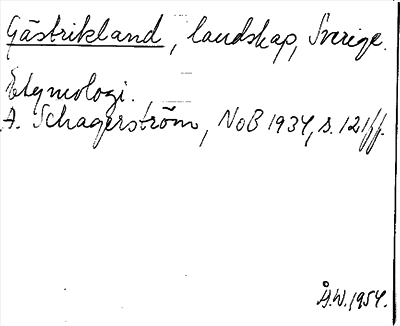 Gästrikland, landskap, Sverige.
Etymologi.
A. Schagerström, NoB 1934, s. 121ff.
Å.W. 1954.